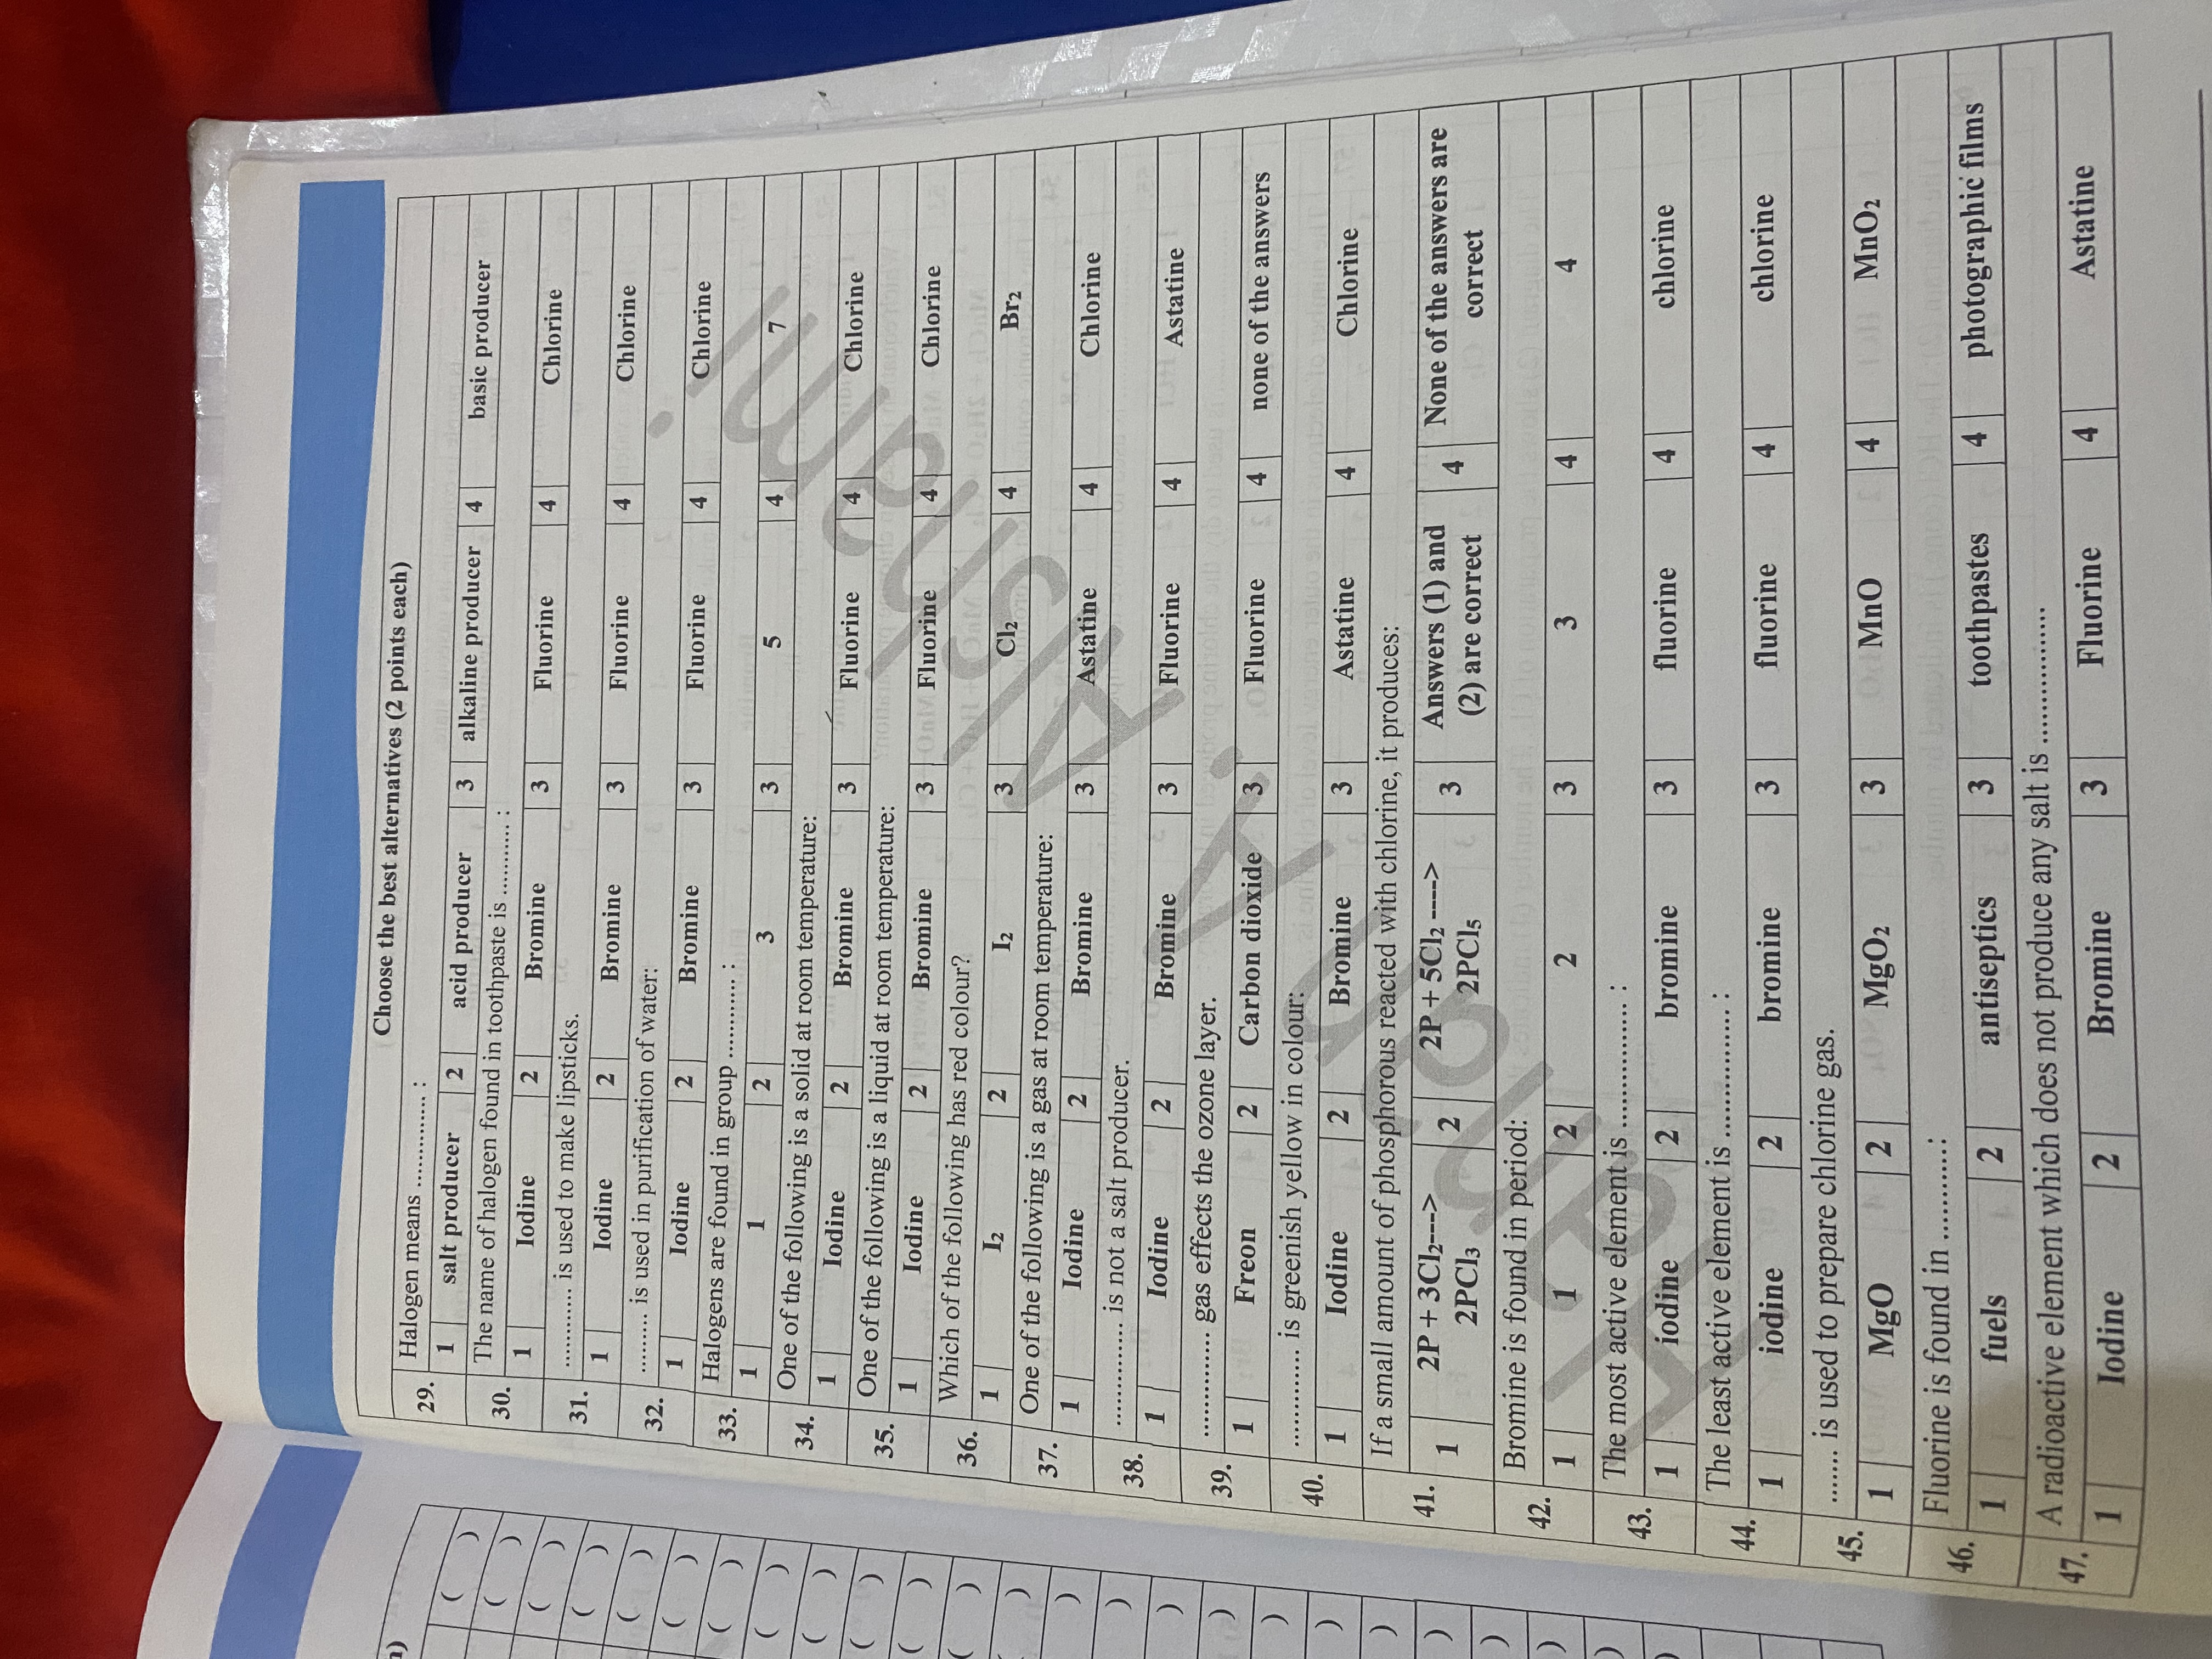 Choose the best alternatives (2 points each)
29. Halogen means ............ :
1 salt producer 2 acid producer 3 alkaline producer 4 basic producer
30. The name of halogen found in toothpaste is .......... :
1 Iodine 2 Bromine 3 Fluorine 4 Chlorine
31. ............ is used to make lipsticks.
1 Iodine 2 Bromine 3 Fluorine 4 Chlorine
32. ......... is used in purification of water:
1 Iodine 2 Bromine 3 Fluorine 4 Chlorine
33. Halogens are found in group ........... :
1 1 2 3 3 5 4 7
34. One of the following is a solid at room temperature:
1 Iodine 2 Bromine 3 Fluorine 4 Chlorine
35. One of the following is a liquid at room temperature:
1 Iodine 2 Bromine 3 Fluorine 4 Chlorine
36. Which of the following has red colour?
1 I₂ 2 I₂ 3 Cl₂ 4 Br₂
37. One of the following is a gas at room temperature:
1 Iodine 2 Bromine 3 Astatine 4 Chlorine
38. ............. is not a salt producer.
1 Iodine 2 Bromine 3 Fluorine 4 Astatine
39. ............. gas effects the ozone layer.
1 Freon 2 Carbon dioxide 3 Fluorine 4 none of the answers
40. ............. is greenish yellow in colour:
1 Iodine 2 Bromine 3 Astatine 4 Chlorine
41. If a small amount of phosphorous reacted with chlorine, it produces:
1 2P + 3Cl₂---> 2 2P + 5Cl₂ -----> 3 Answers (1) and 4 None of the answers are
2PCl₃ 2PCl₅ (2) are correct correct
42. Bromine is found in period:
1 1 2 2 3 3 4 4
43. The most active element is .............. :
1 iodine 2 bromine 3 fluorine 4 chlorine
44. The least active element is .............. :
1 iodine 2 bromine 3 fluorine 4 chlorine
45. ....... is used to prepare chlorine gas.
1 MgO 2 MgO₂ 3 MnO 4 MnO₂
46. Fluorine is found in ...........:
1 fuels 2 antiseptics 3 toothpastes 4 photographic films
47. A radioactive element which does not produce any salt is ................
1 Iodine 2 Bromine 3 Fluorine 4 Astatine